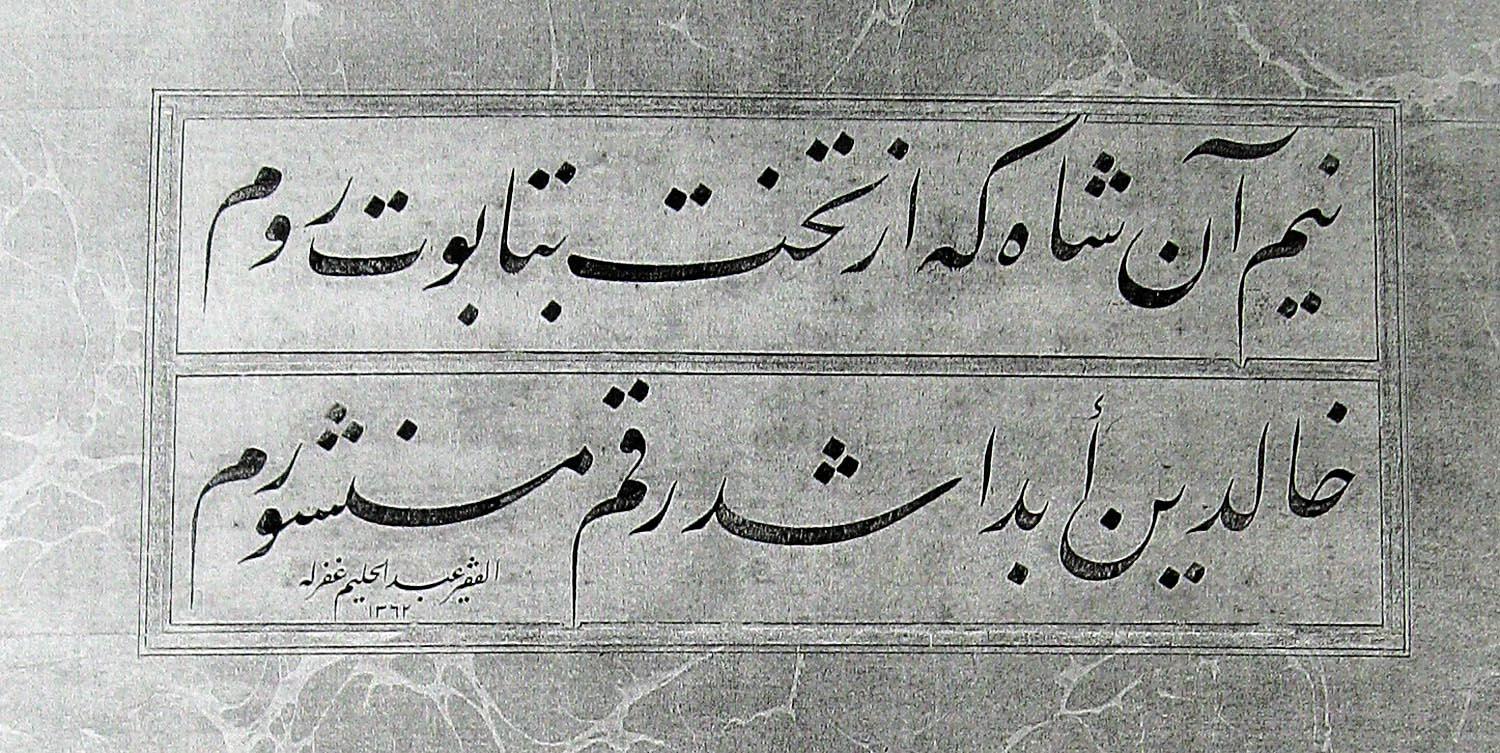 نیم آن شاه که از تخت بتابوت روم
خالدین أبدا شد رقم منشورم
الفقیر عبد الحلیم غفرله
١٣٦٢